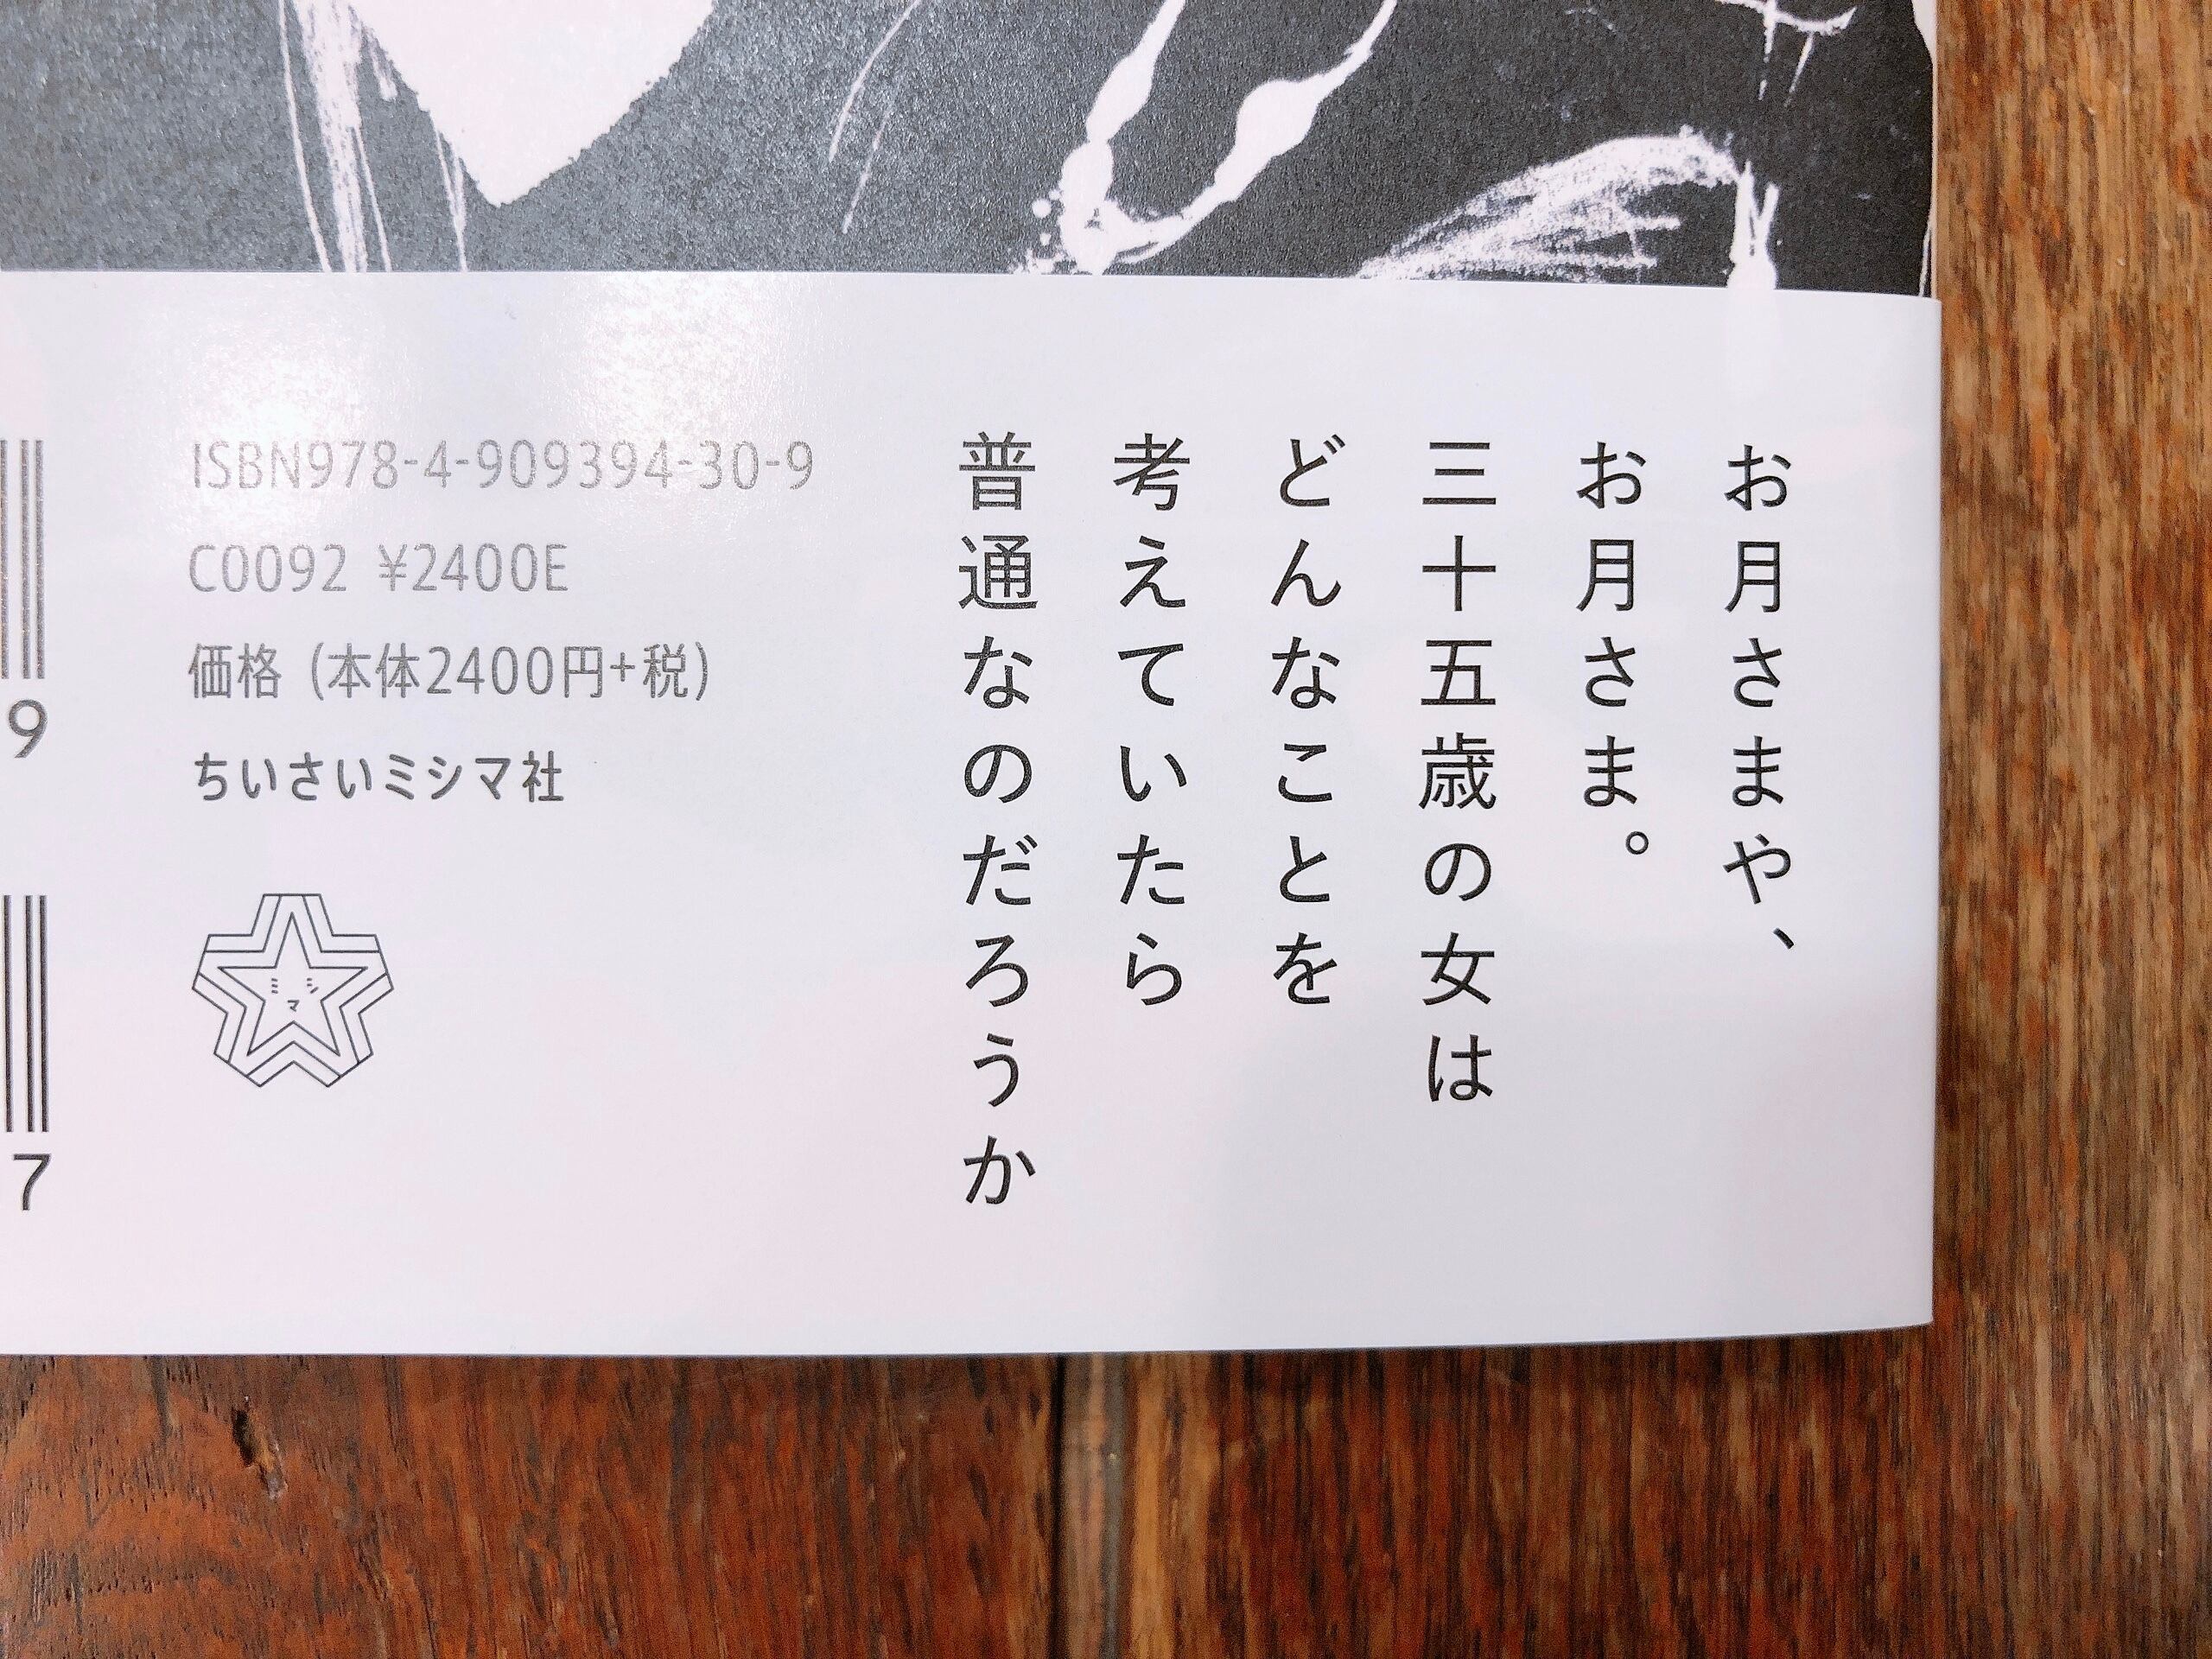 お月さまや、
お月さま。
三十五歳の女は
どんなことを
考えていたら
普通なのだろうか
ISBN978-4-909394-30-9
C0092 ¥2400E
価格 (本体2400円+税)
ちいさいミシマ社
ミシマ
9
7